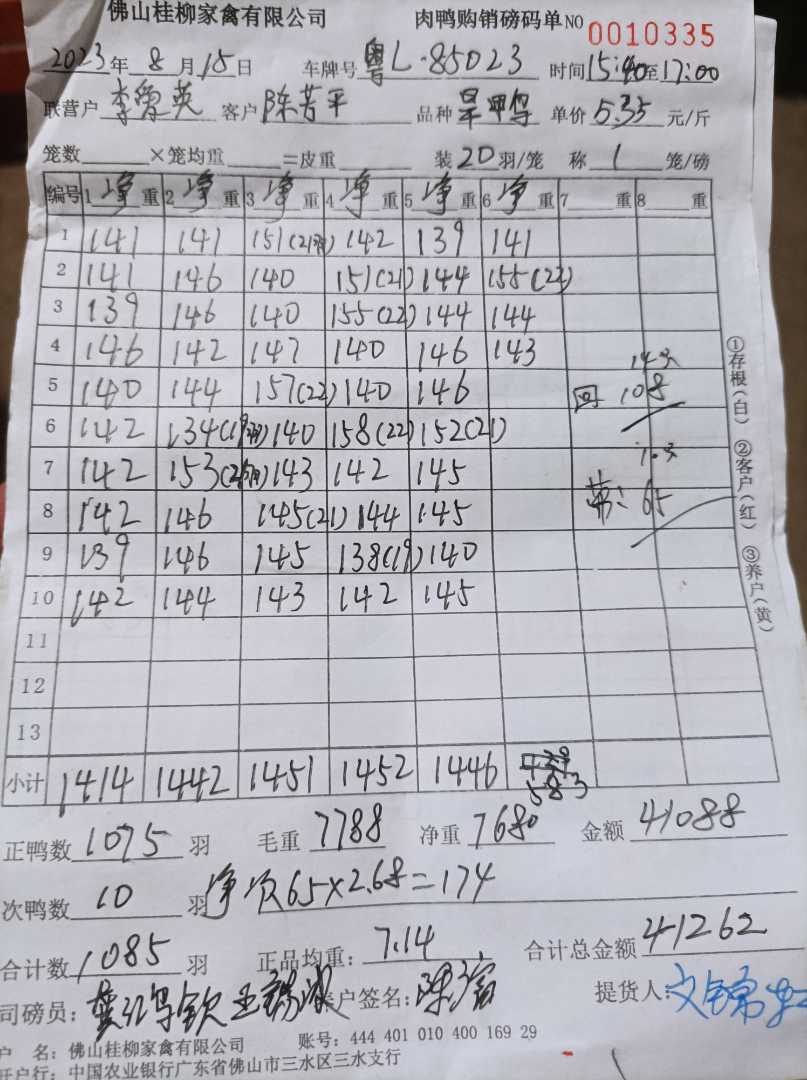 佛山桂柳家禽有限公司 肉鸭购销磅码单NO 0010335
2023年8月15日 车牌号 粤L·85023 时间15:40至17:00
联营户 李 英 客户 陈芳平 品种 单价5.35元/斤
笼数 ×笼均重 =皮重 装20羽/笼 称1笼/磅
编号 1净重 2净重 3净重 4净重 5净重 6净重 7 重 8 重
1 141 141 151(21羽) 142 139 141
2 141 146 140 151(21) 144 155(22)
3 139 146 140 155(22) 144 144
4 146 142 147 140 146 143 14只
5 140 144 157(22) 140 146 回 108
6 142 134(19羽) 140 158(22) 152(21) 10只
7 142 153(21羽) 143 142 145
8 142 146 145(21) 144 145 65
9 139 146 145 138(19) 140
10 142 144 143 142 145
11
12
13
小计 1414 1442 1451 1452 1446 583
①存根(白) ②客户(红) ③养户(黄)
正鸭数1075羽 毛重7788 净重7680 金额41088
次鸭数10羽 净次65×2.68=174
合计数1085羽 正品均重:7.14 合计总金额41262
司磅员: 养户签名: 提货人:
户 名:佛山桂柳家禽有限公司 账号:444 401 010 400 169 29
开户行:中国农业银行广东省佛山市三水区三水支行